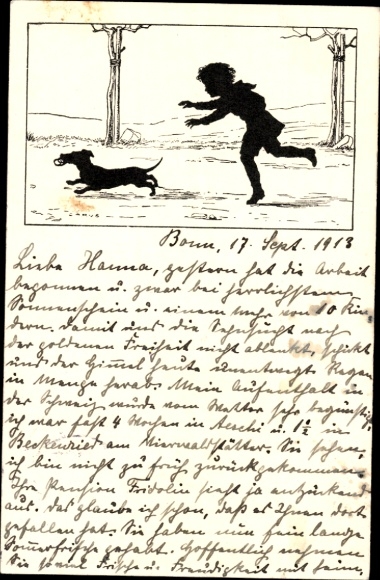 Bonn, 17. Sept. 1913
Liebe Hanna, gestern hat die Arbeit
begonnen u. zwar bei herrlichstem
Sonnenschein u. einem Mehr von 10 Kin
dern. Damit uns die Sehnsucht nach
der goldenen Freiheit nicht ablenkt, schickt
uns der Himmel heute unentwegt Regen
in Menge herab. Mein Aufenthalt in
der Schweiz wurde vom Wetter sehr begünstigt,
ich war fast 4 Wochen in Aeschi u. 1½ in
Beckenried am Vierwaldstätter. Sie sehen,
ich bin nicht zu früh zurückgekommen.
Ihre Pension Fridolin sieht ja entzückend
aus. Das glaube ich schon, daß es Ihnen dort
gefallen hat. Sie haben nun fein lange
Sommerfrische gehabt. Hoffentlich nehmen
Sie soviel Frische u. Freudigkeit mit heim,